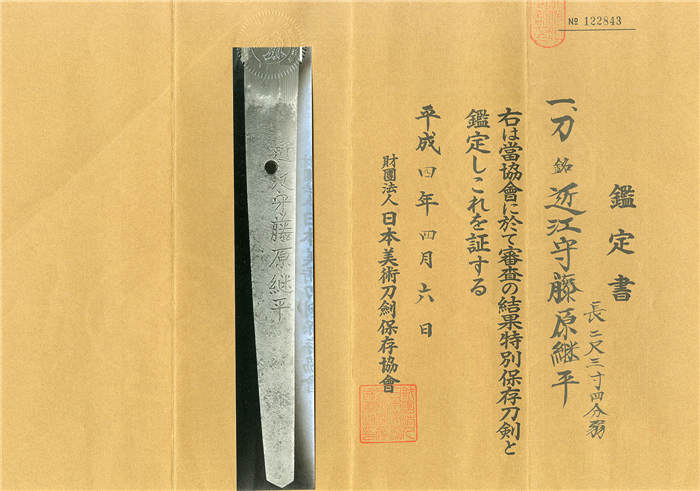 № 122843
鑑定書
一、刀 銘 近江守藤原継平
長二尺三寸四分弱
右は當協會に於て審査の結果特別保存刀剣と
鑑定しこれを証する
平成四年四月六日
財團法人日本美術刀劍保存協會
近江守藤原継平